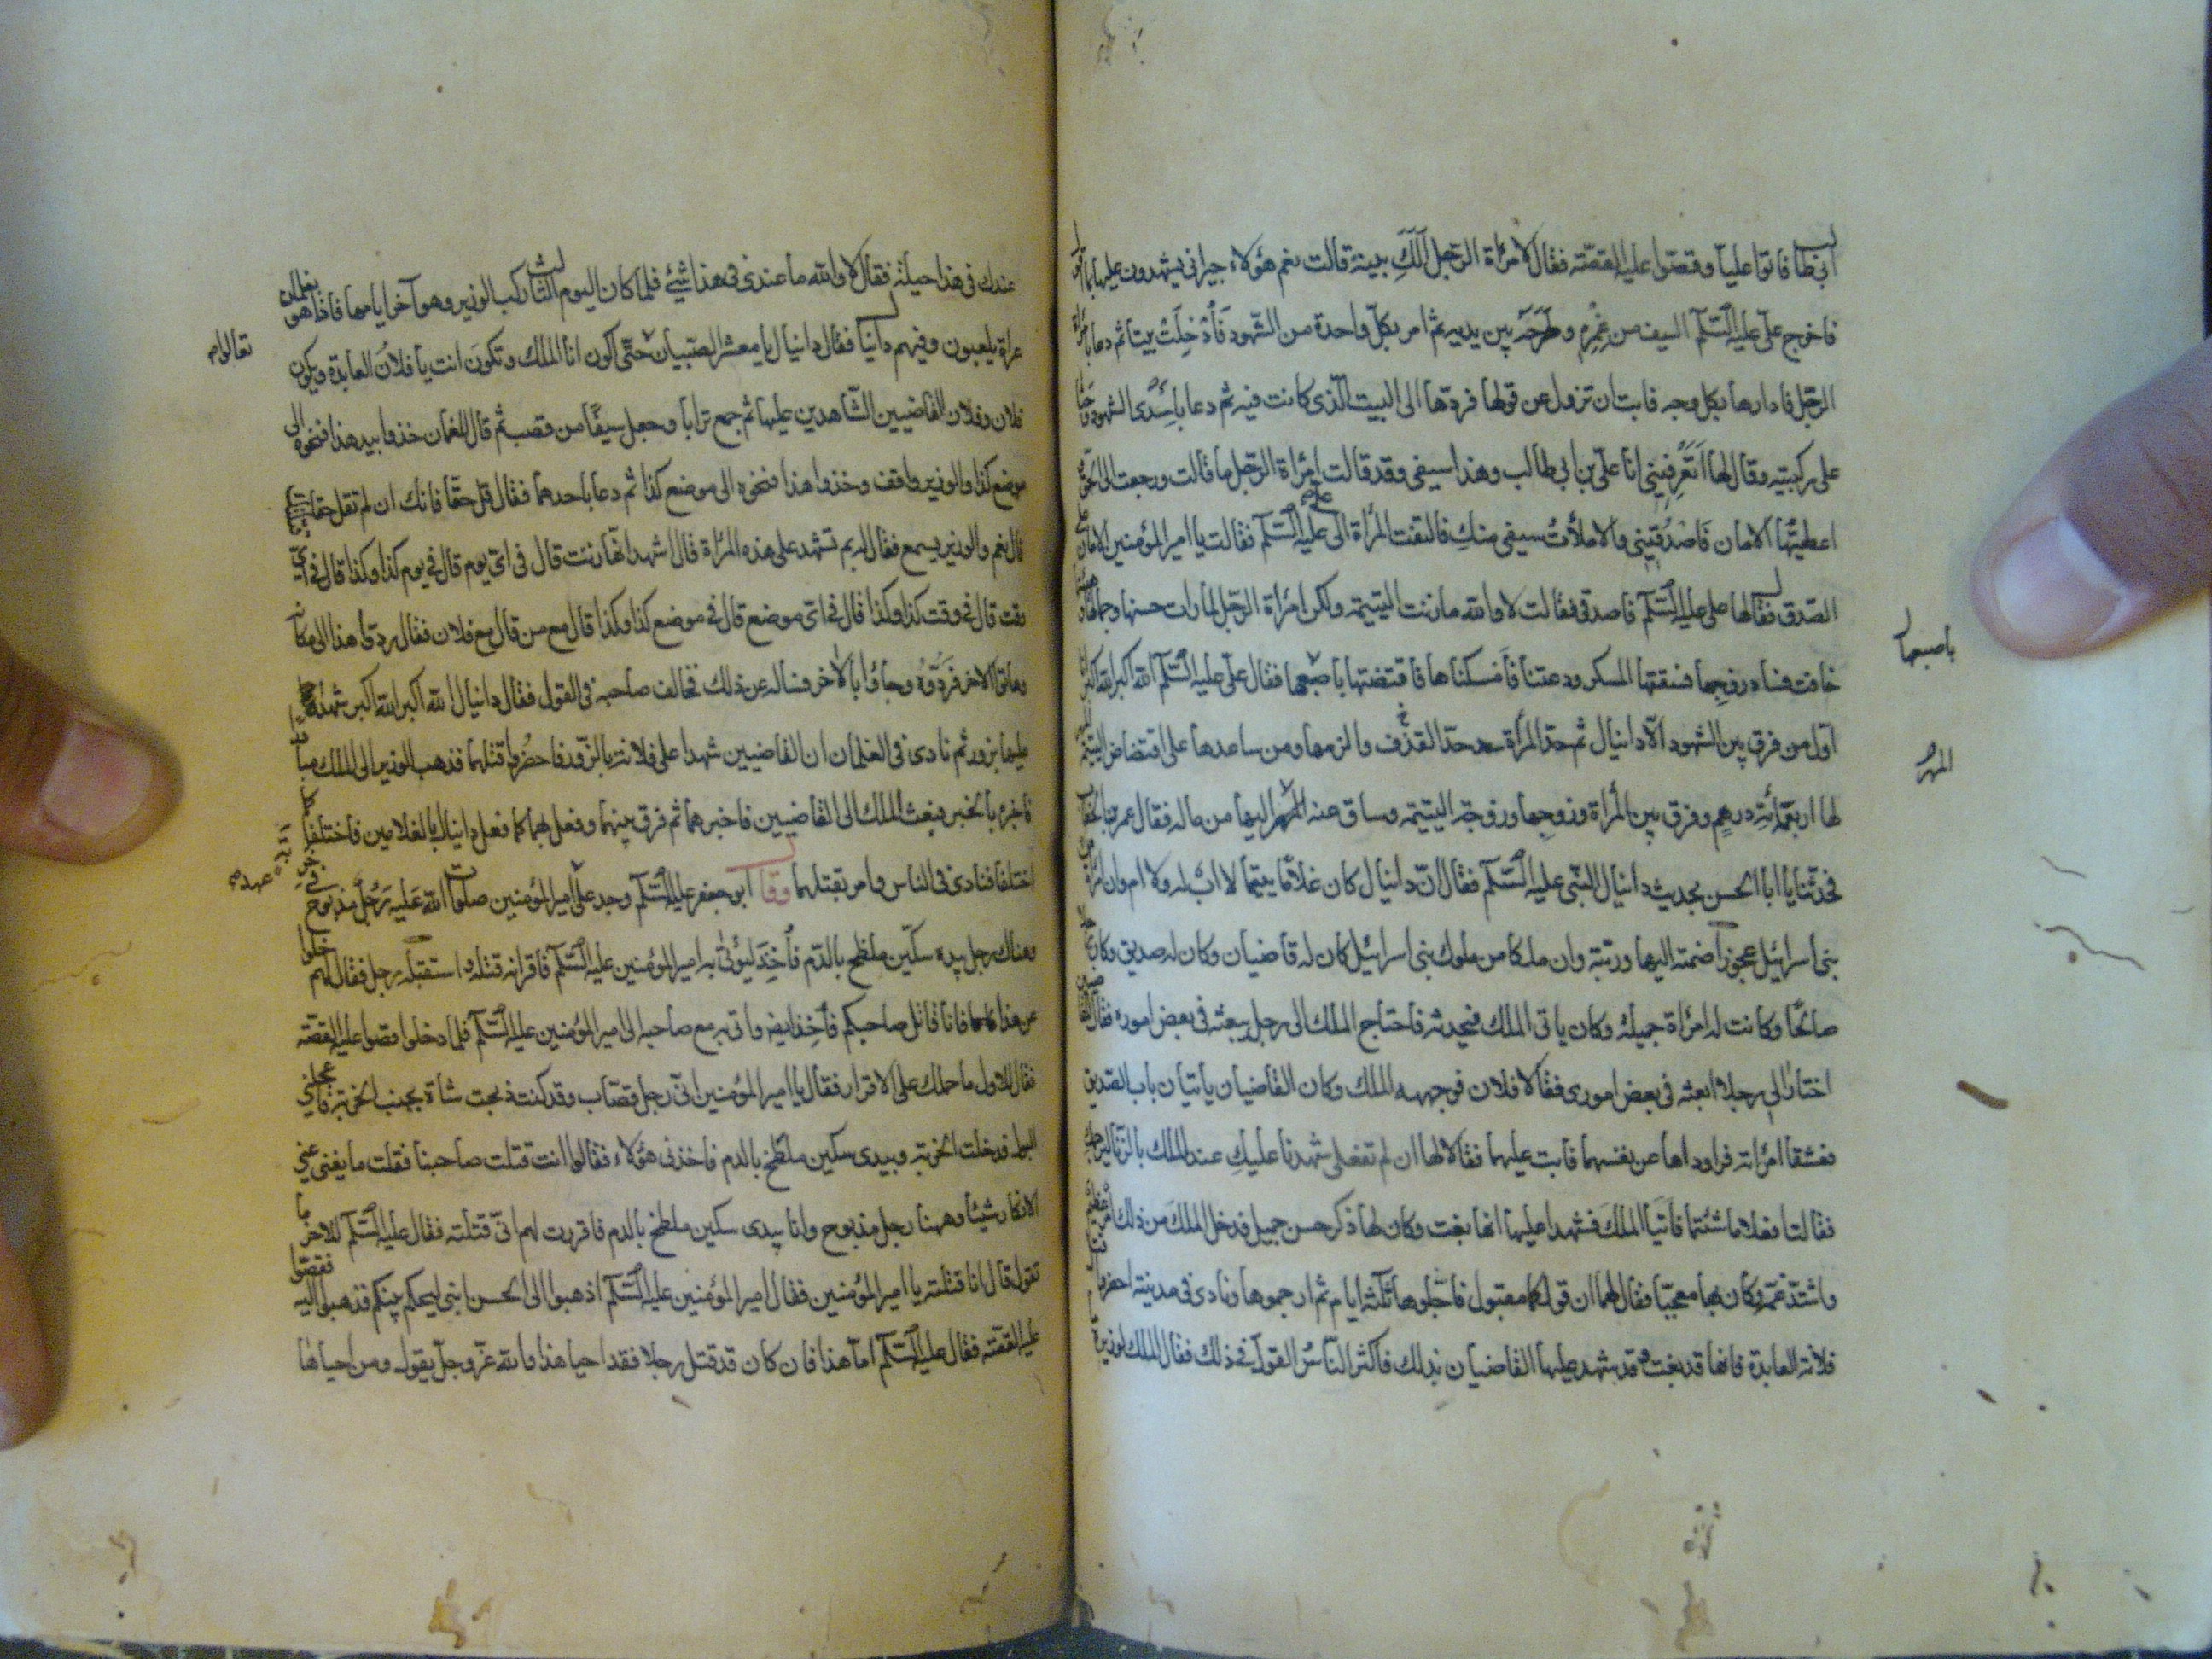 ابي طالب فاتوا عليا وقصوا عليه القصة فقال لامرأة الرجل ألك بينة قالت نعم هؤلاء جيراني يشهدون عليها بما اقول
فاخرج علي عليه السلم السيف من غمده وطرحه بين يديه ثم امر بكل واحدة من الشهود فأدخلت بيتا ثم دعا بامرأة
الرجل فادارها بكل وجه فابت ان تزول عن قولها فردها الى البيت الذي كانت فيه ثم دعا باحدى الشهود وجثا
على ركبتيه وقال لها اتعرفيني انا علي بن ابي طالب وهذا سيفي وقد قالت امرأة الرجل ما قالت ورجعت الى الحق
اعطيتها الامان فاصدقيني والا ملأت سيفي منك فالتفت المرأة الى علي عليه السلم فقالت يا امير المؤمنين الامان على
الصدق فقال لها علي عليه السلم فاصدقي فقالت لا والله ما زنت اليتيمة ولكن امرأة الرجل لما رات حسنها وجمالها
خافت فساد زوجها فسقتها المسكر ودعتنا فأمسكناها فاقتضتها باصبعها فقال علي عليه السلم الله اكبر الله اكبر
اول من فرق بين الشهود الا دانيال ثم حد المرأة حد القذف والزمها ومن ساعدها على اقتضاض اليتيمة
لها اربعمائة درهم وفرق بين المرأة وزوجها وزوجته اليتيمة وساق عنه المهر اليها من ماله فقال عمر بن الخطاب
فحدثنا يا ابا الحسن بحديث دانيال النبي عليه السلم فقال ان دانيال كان غلاما يتيما لا اب له ولا ام وان امرأة
بني اسرائيل عجوزا ضمته اليها وربته وان ملكا من ملوك بني اسرائيل كان له قاضيان وكان له صديق وكان
صالحا وكانت له امرأة جميلة وكان ياتي الملك فيحدثه فاحتاج الملك الى رجل يبعثه في بعض اموره فقال
اختارا لي رجلا ابعثه في بعض اموري فقالا فلان فوجهه الملك وكان القاضيان ياتيان باب الصديق
فعشقا امرأته فراوداها عن نفسها فابت عليهما فقالا لها ان لم تفعلي شهدنا عليك عند الملك بالزنا
فقالت افعلا ما شئتما فاتيا الملك فشهدا عليها انها بغت وكان لها ذكر حسن جميل فدخل الملك من ذلك امر عظيم
واشتد غمه وكان بها معجبا فقال لهما ان قولكما مقبول فاجلوها ثلثة ايام ثم ارجموها ونادى في مدينته احضروا
فلانة العابدة فانها قد بغت وقد شهد عليها القاضيان بذلك فاكثر الناس القول في ذلك فقال الملك لوزيره
باصبعها
المهر
عندك في هذا حيلة فقال لا والله ما عندي في هذا شيء فلما كان اليوم الثالث ركب الوزير وهو آخر ايامها فاذا هو بغلمان
عراة يلعبون وفيهم دانيال فقال دانيال يا معشر الصبيان حتى اكون انا الملك وتكون انت يا فلان العابدة ويكون
تعالوا
فلان وفلان القاضيين الشاهدين عليها ثم جمع ترابا وجعل سيفا من قصب ثم قال للغلمان خذوا بيد هذا فنحوه الى
موضع كذا والوزير واقف وخذوا هذا فنحوه الى موضع كذا ثم دعا باحدهما فقال قل حقا فانك ان لم تقل حقا
قال نعم والوزير يسمع فقال له بم تشهد على هذه المرأة قال اشهد انها زنت قال في اي يوم قال في يوم كذا وكذا قال في اي
وقت قال في وقت كذا وكذا قال في اي موضع قال في موضع كذا وكذا قال مع من قال مع فلان فقال ردوا هذا الى مكانه
وهاتوا الاخر فردوه وجاؤا بالاخر فساله عن ذلك فخالف صاحبه في القول فقال دانيال الله اكبر الله اكبر شهدا
عليها بزور ثم نادى في الغلمان ان القاضيين شهدا على فلانة بالزور فاحضروا قتلهما فذهب الوزير الى الملك مبادرا
فاخبره بالخبر فبعث الملك الى القاضيين فاحضرهما ثم فرق بينهما وفعل بهما كما فعل دانيال بالغلامين فاختلفا كما
اختلفا فنادى في الناس وامر بقتلهما وقال ابو جعفر عليه السلم وجد على عهد امير المؤمنين صلوات الله عليه رجل مذبوح في خربة
وهناك رجل بيده سكين ملطخ بالدم فأخذ ليؤتى به امير المؤمنين عليه السلم فاقر انه قتله واستقبله رجل فقال لهم خلوا
عن هذا فانا قاتل صاحبكم فأخذ ايضا واتى به مع صاحبه الى امير المؤمنين عليه السلم فلما دخلوا قصوا عليه القصة
فقال للاول ما حملك على الاقرار فقال يا امير المؤمنين اني رجل قصاب وقد كنت ذبحت شاة بجنب الخربة فاعجلني
البول فدخلت الخربة وبيدي سكين ملطخ بالدم فاخذني هؤلاء فقالوا انت قتلت صاحبنا فقلت ما يغني عني
الانكار شيئا وههنا رجل مذبوح وانا بيدي سكين ملطخ بالدم فاقررت لهم اني قتلته فقال عليه السلم للاخر ما
تقول قال انا قتلته يا امير المؤمنين فقال امير المؤمنين عليه السلم اذهبوا الى الحسن ابني ليحكم بينكم فذهبوا اليه فقصوا
عليه القصة فقال عليه السلم اما هذا فان كان قد قتل رجلا فقد احيا هذا والله عز وجل يقول ومن احياها